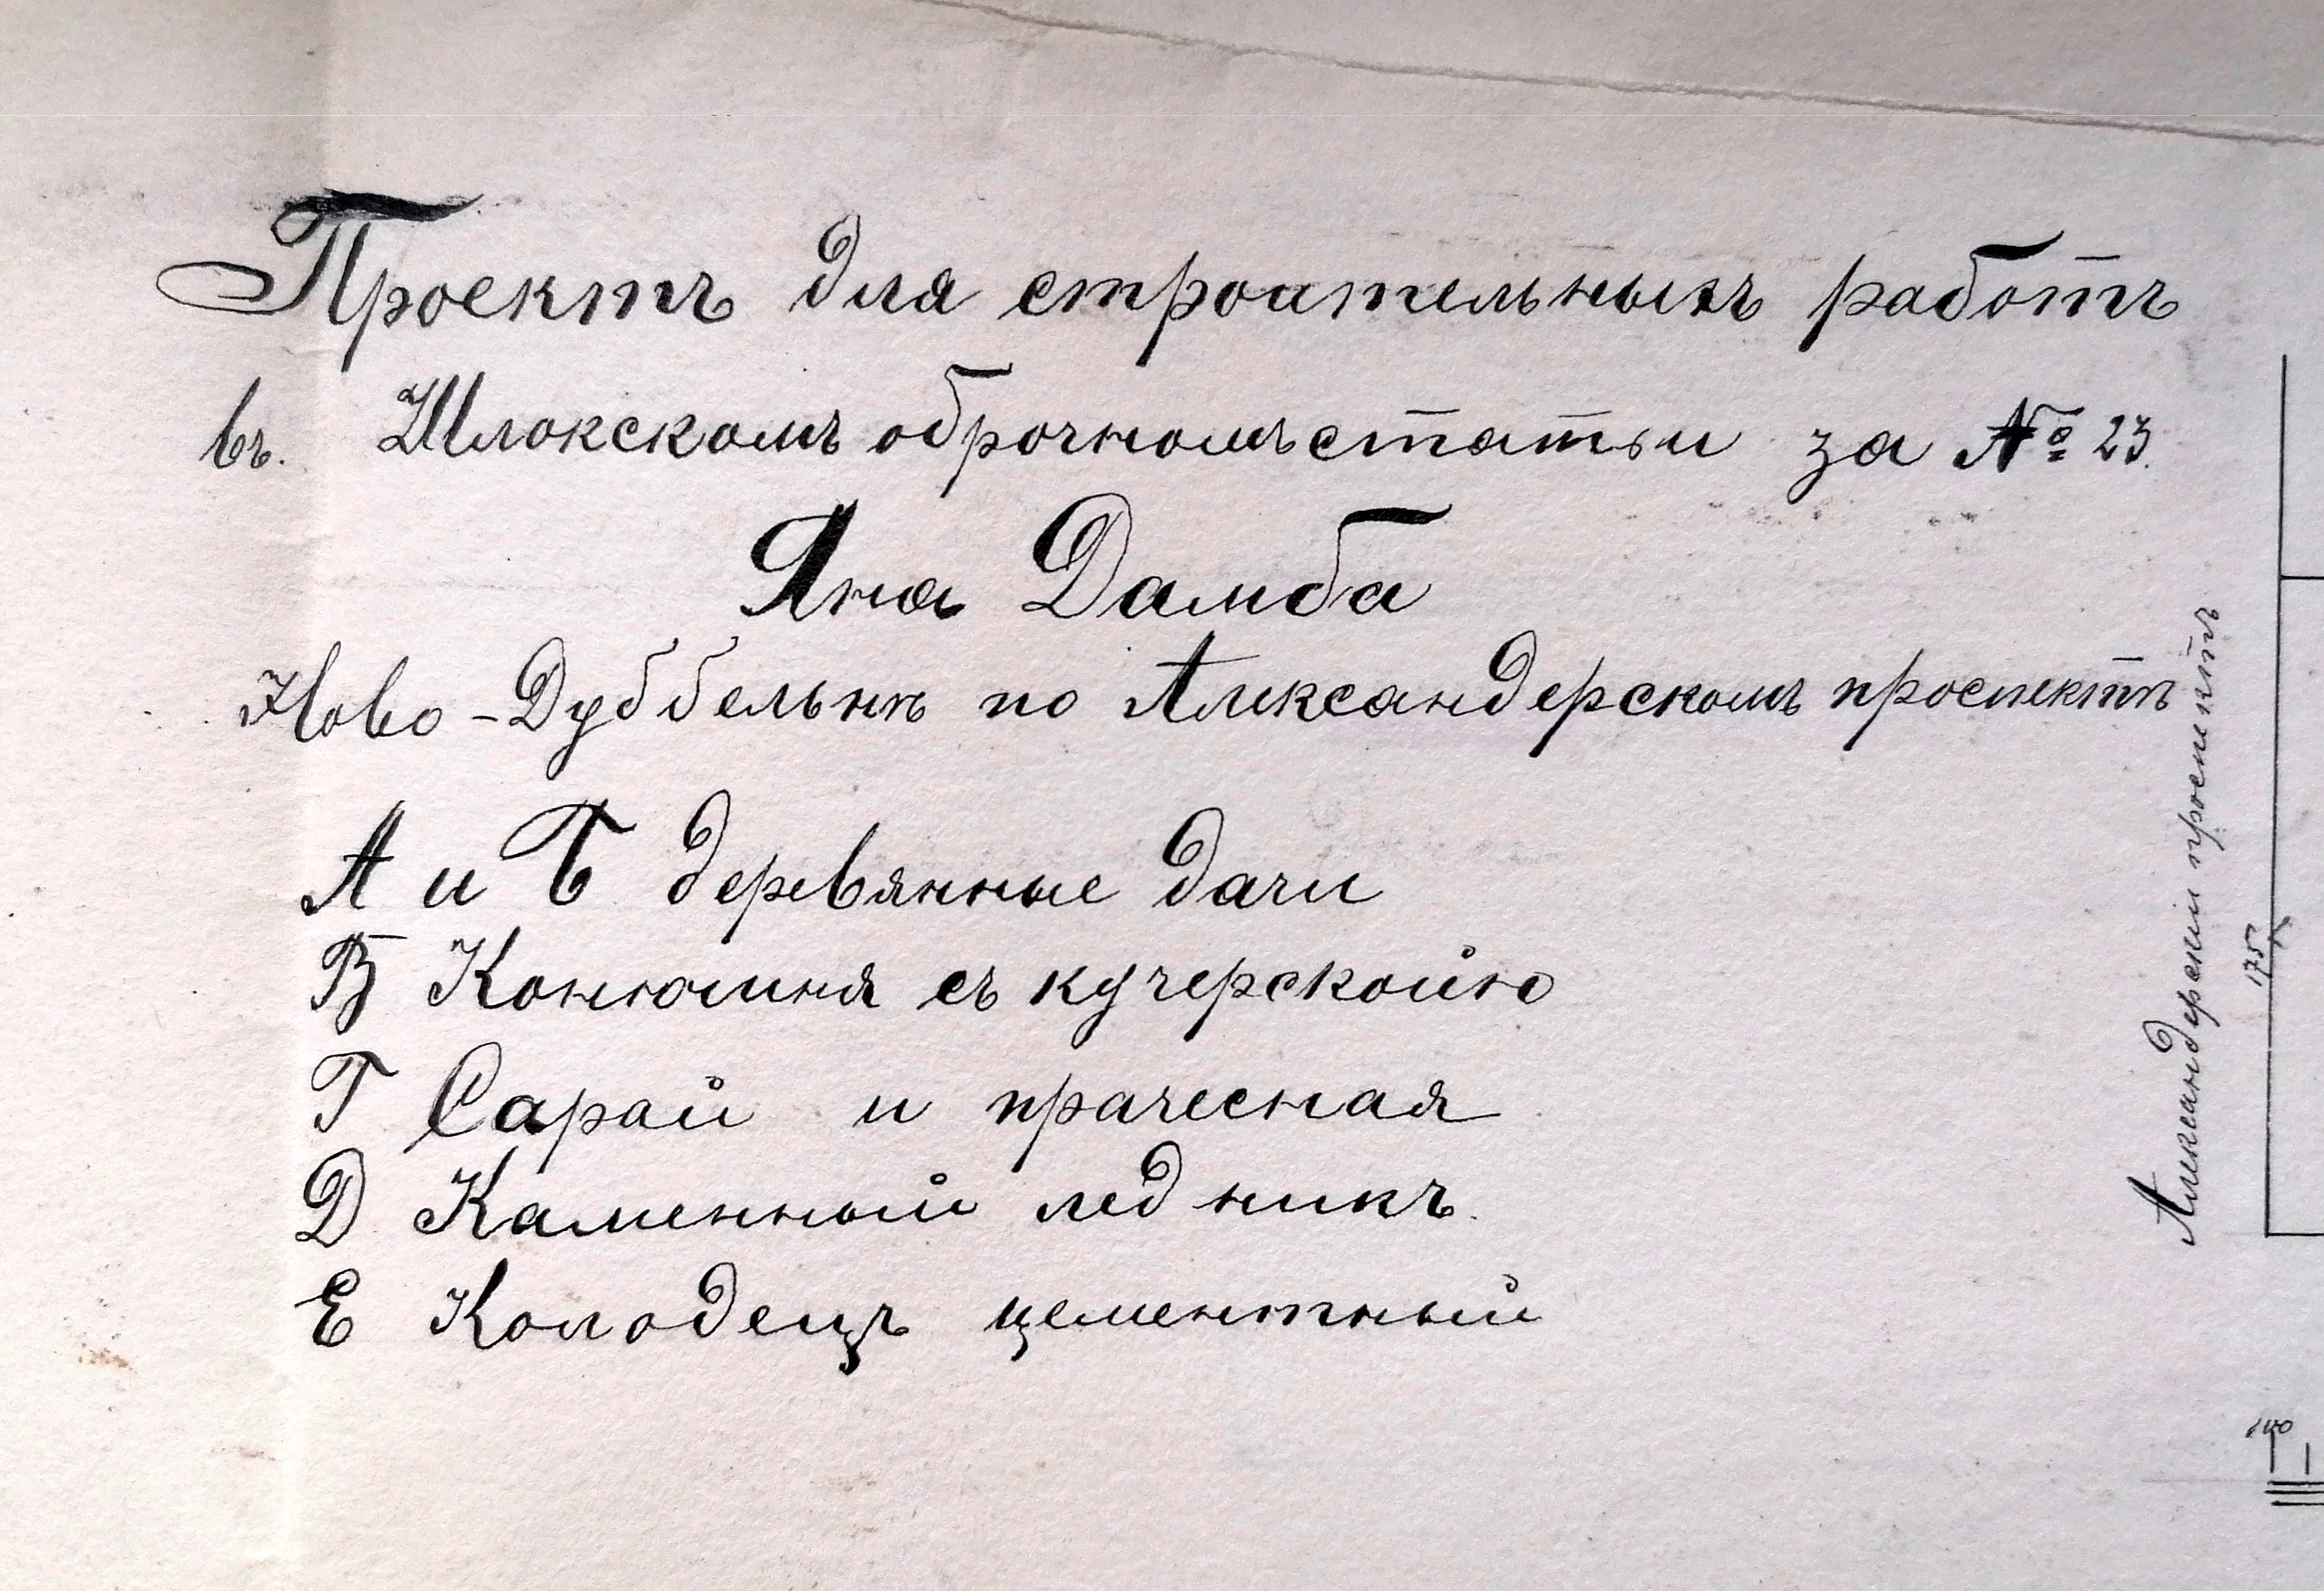 Проектъ для строительныхъ работъ
въ. Шлокскомъ оброчномъ статьи за № 23.
Яна Дамба
Ново-Дуббельнѣ по Александерскомъ проспектѣ
А и Б деревянные дачи
В Конюшня съ кучерскойю
Г Сарай и прачесная
Д Каменный ледникъ.
Е Колодецъ цементный
Александерскій проспектъ
175
100